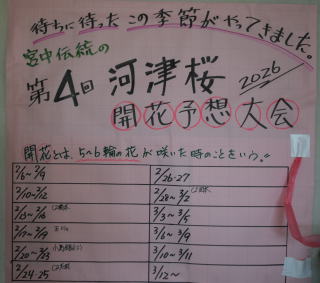 待ちに待ったこの季節がやってきました。
宮中伝統の
第4回 河津桜 2026
開花予想大会
開花とは、5~6輪の花が咲いた時のことをいう。
2/6~2/9
2/26・27
2/10~2/12
2/28~3/2
2/13~2/16
3/3~3/5
2/17~2/19
3/6~3/9
2/20~2/23
3/10~3/11
2/24・25
3/12~